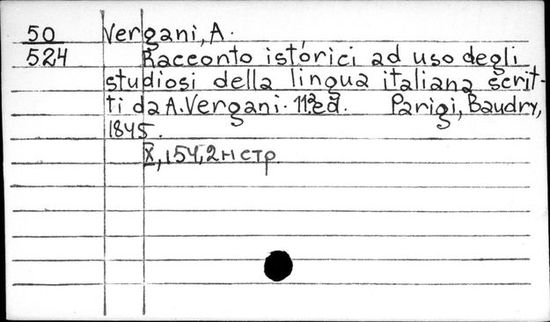 50 Vergani, A.
524 Racconto istórici ad uso degli
studiosi della lingua italiana scrit-
ti da A. Vergani. 11ª ed. Parigi, Baudry,
1845.
X, 154, 2 н стр.